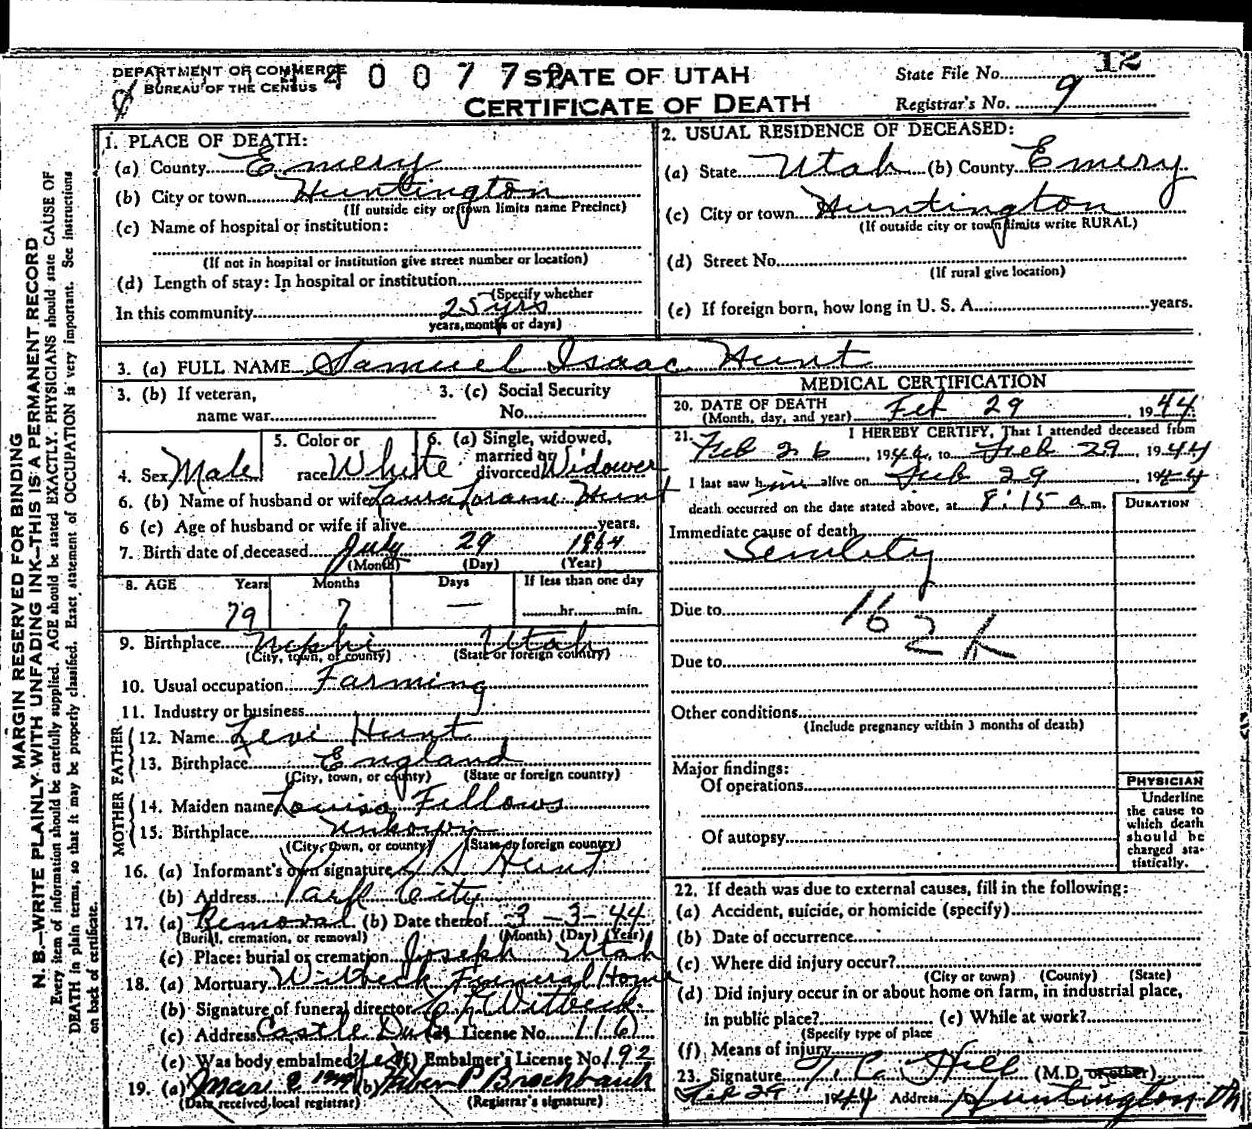 DEPARTMENT OF COMMERCE
BUREAU OF THE CENSUS
4 0 0 7 7
STATE OF UTAH
CERTIFICATE OF DEATH
12
State File No.
Registrar's No. 9
MARGIN RESERVED FOR BINDING
N. B.—WRITE PLAINLY-WITH UNFADING INK—THIS IS A PERMANENT RECORD
Every item of information should be carefully supplied. AGE should be stated EXACTLY. PHYSICIANS should state CAUSE OF
DEATH in plain terms, so that it may be properly classified. Exact statement of OCCUPATION is very important. See instructions
on back of certificate.
1. PLACE OF DEATH:
(a) County Emery
(b) City or town Huntington
(If outside city or town limits name Precinct)
(c) Name of hospital or institution:
(If not in hospital or institution give street number or location)
(d) Length of stay: In hospital or institution
(Specify whether
In this community 25 yrs
years, months or days)
2. USUAL RESIDENCE OF DECEASED:
(a) State Utah (b) County Emery
(c) City or town Huntington
(If outside city or town limits write RURAL)
(d) Street No.
(If rural give location)
(e) If foreign born, how long in U. S. A. years.
3. (a) FULL NAME Samuel Isaac Hunt
3. (b) If veteran,
name war
3. (c) Social Security
No.
4. Sex Male
5. Color or
race White
6. (a) Single, widowed,
married or
divorced Widower
6. (b) Name of husband or wife Laura Loraine Hunt
6 (c) Age of husband or wife if alive years.
7. Birth date of deceased July 29 1864
(Month) (Day) (Year)
8. AGE Years Months Days If less than one day
79 7 — hr. min.
9. Birthplace Nephi Utah
(City, town, or county) (State or foreign country)
10. Usual occupation Farming
11. Industry or business
FATHER
12. Name Levi Hunt
13. Birthplace England
(City, town, or county) (State or foreign country)
MOTHER
14. Maiden name Louisa Fellows
15. Birthplace Unkown
(City, town, or county) (State or foreign country)
16. (a) Informant's own signature Hunt
(b) Address City
17. (a) Removal (b) Date thereof 3-3-44
(Burial, cremation, or removal) (Month) (Day) (Year)
(c) Place: burial or cremation Joseph Utah
18. (a) Mortuary Witbeck Funeral Home
(b) Signature of funeral director Witbeck
(c) Address Castle Dale (d) License No. 116
(e) Was body embalmed? yes (f) Embalmer's License No. 192
19. (a) Mar (b)
(Date received local registrar) (Registrar's signature)
MEDICAL CERTIFICATION
20. DATE OF DEATH
(Month, day, and year) Feb 29, 1944
21. I HEREBY CERTIFY, That I attended deceased from
Feb 26, 1944, to Feb 29, 1944
I last saw him alive on Feb 29, 1944
death occurred on the date stated above, at 8:15 a.m.
DURATION
Immediate cause of death
Senility
Due to
162
Due to
Other conditions
(Include pregnancy within 3 months of death)
Major findings:
Of operations
Of autopsy
PHYSICIAN
Underline
the cause to
which death
should be
charged sta-
tistically.
22. If death was due to external causes, fill in the following:
(a) Accident, suicide, or homicide (specify)
(b) Date of occurrence
(c) Where did injury occur?
(City or town) (County) (State)
(d) Did injury occur in or about home on farm, in industrial place,
in public place? (e) While at work?
(Specify type of place
(f) Means of injury
23. Signature T. C. Hill (M.D. or other)
Feb 29 1944 Address Huntington